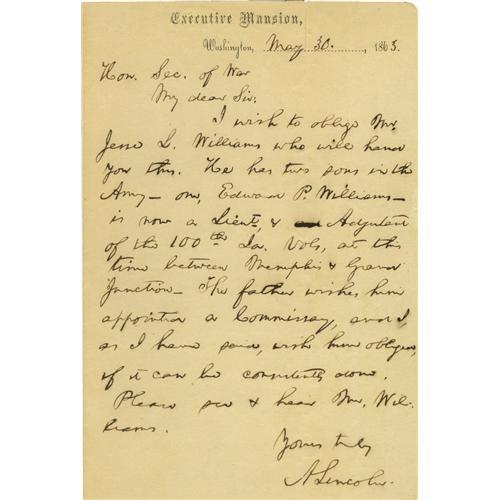 Executive Mansion,
Washington, May 30., 1863.
Hon. Sec. of War
My dear Sir:
I wish to oblige Mr.
Jesse L. Williams who will hand
you this. He has two sons in the
Army— one, Edward P. Williams—
is now a Lieut, & Adjutant
of the 100th Ia. Vols, at this
time between Memphis & Grand
Junction— The father wishes him
appointed a Commissary, and I
as I have said, wish him obliged,
if it can be consistently done.
Please see & hear Mr. Wil-
liams.
Yours truly
A. Lincoln.